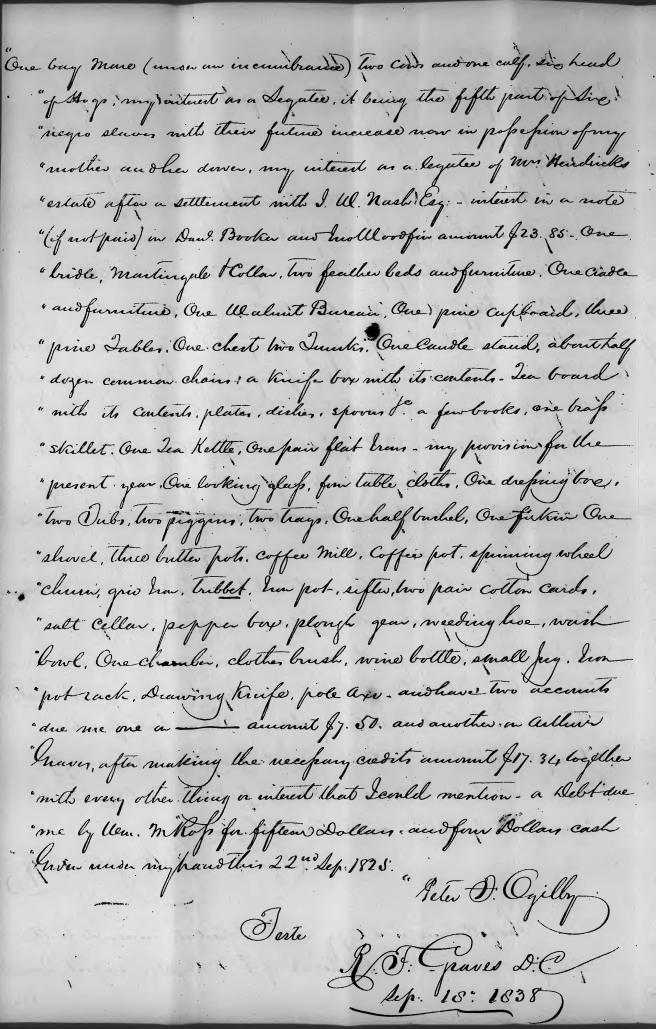 "One bay Mare (under an incumbrance) two cows and one calf, six head
"of Hogs, my interest as a Legatee, it being the fifth part of Six
"negro slaves with their future increase now in possession of my
"mother and her dower, my interest as a legatee of Mrs Hendricks
"estate after a settlement with I. W. Nash Esq: - interest in a note
"(if not paid) in Danl. Booker and Jno Woodfin amount $23.85 - One
"bridle, Martingale & Collar, two feather beds and furniture, One Cradle
"and furniture, One Walnut Bureau, One pine cupboard, three
"pine Tables, One chest two Trunks, One Candle stand, about half
"dozen common chairs: a Knife box with its contents - Tea board
"with its contents, plates, dishes, spoons &c a few books, one brass
"skillet, One Tea Kettle, One pair flat Irons - my provision for the
"present year, One looking glass, four table cloths, One dressing box,
"two Tubs, two piggins, two trays, One half bushel, One firkin One
"shovel, three butter pots, coffee Mill, Coffee pot, spinning wheel
"churn, grid Iron, tribbet, Iron pot, sifter, two pair cotton cards,
"salt Cellar, pepper box, plough gear, weeding hoe, wash
"bowl, One chamber, clothes brush, wine bottle, small Jug, Iron
"pot rack, Drawing Knife, pole Axe - and have two accounts
"due me one on ——— amount $7.50. and another on Arthur
"Graves, after making the necessary credits amount $17.34 together
"with every other thing or interest that I could mention - a Debt due
"me by Wm. McRoss for fifteen Dollars - and four Dollars cash
"Given under my hand this 22nd Sep. 1825.
"Peter F. Ogilby
Teste
R. F. Graves D.C.
Sep. 18th 1838